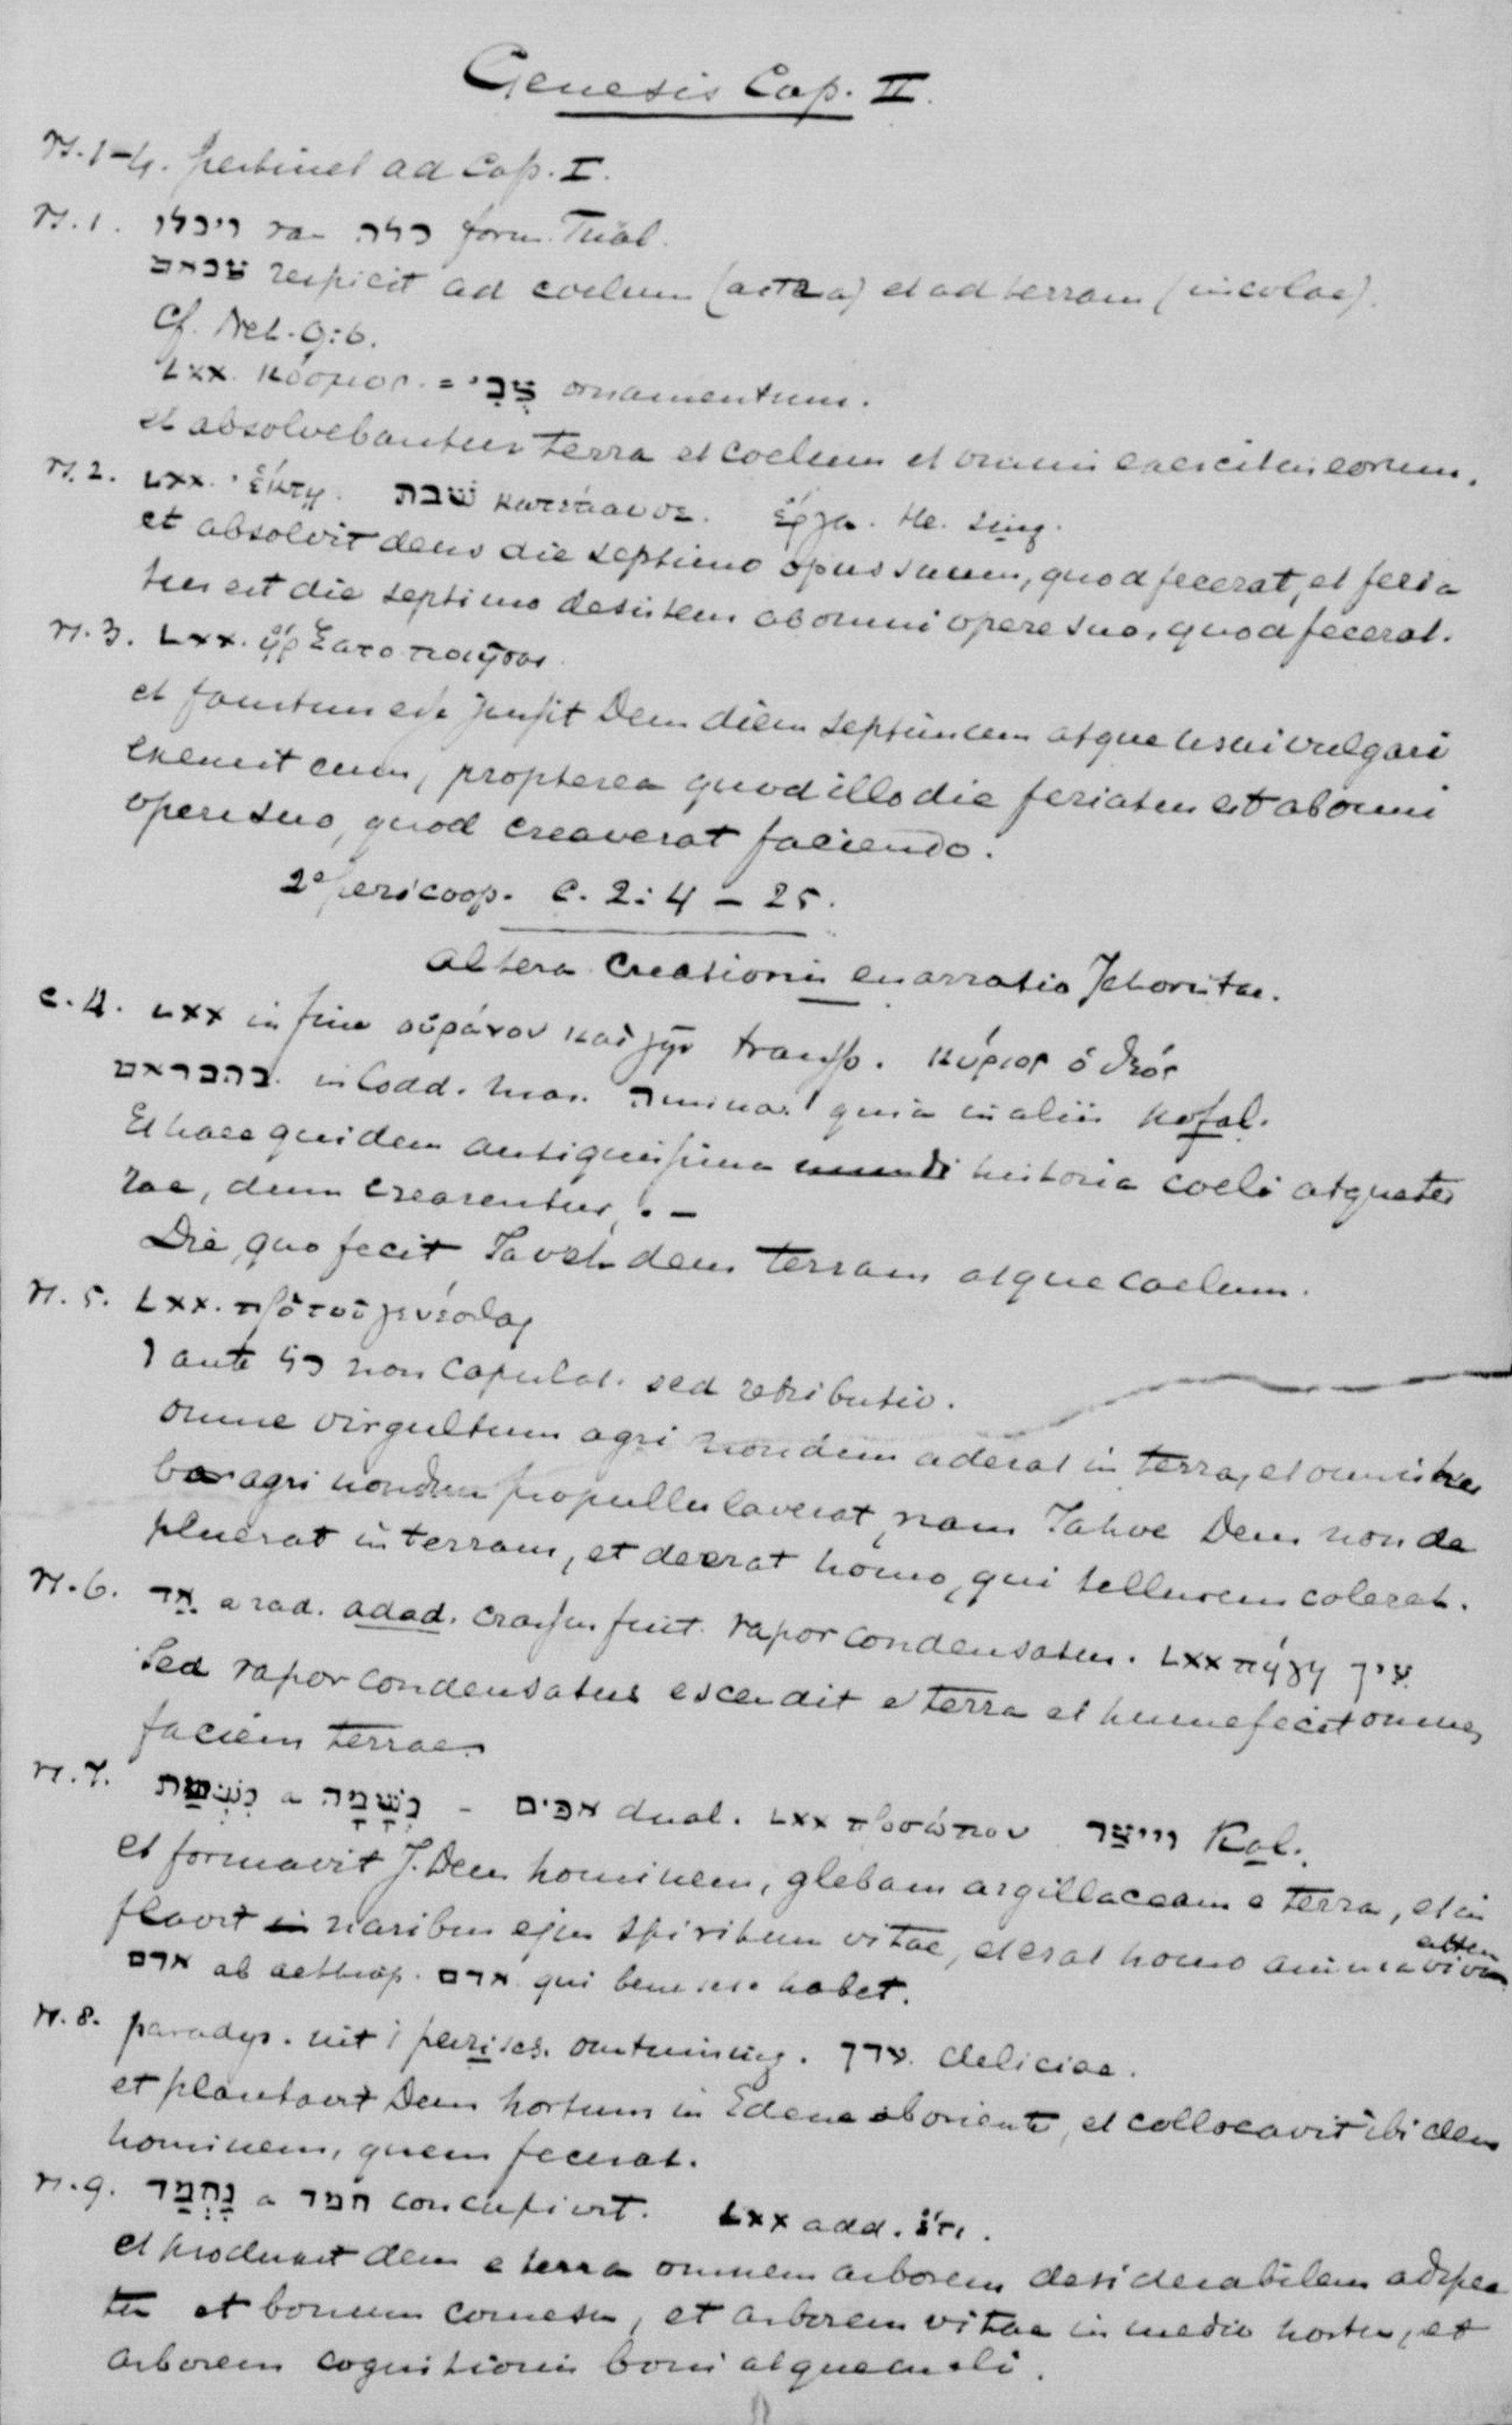 Genesis Cap. II.
vs. 1-4. pertinet ad Cap. I.
vs. 1. ויכלו va כלה form. Pual.
צבאם respicit ad coelum (astra) et ad terram (incolae).
Cf. Neh. 9:6.
LXX. κόσμος. = צְבִי ornamentum.
et absolvebantur terra et coelum et omnis exercitus eorum.
vs. 2. LXX. ἕκτῃ. שׁבת κατέπαυσε. ἔργα. He. sing.
et absolvit deus die septimo opus suum, quod fecerat, et feria
tus est die septimo desistens ab omni opere suo, quod fecerat.
vs. 3. LXX. ὧν ἤρξατο ποιῆσαι
et faustum esse jussit Deus diem septimum atque usui vulgari
exemit eum, propterea quod illo die feriatus est ab omni
opere suo, quod creaverat faciendo.
2e pericoop. C. 2:4 - 25.
altera Creationis enarratio Jehovistae.
c. 4. LXX in fine οὐράνον καὶ γῆν transp. κύριος ὁ θεός
בהבראם. in Codd. mas. ה minus quia in aliis kofal.
Et haec quidem antiquissima mundi historia coeli atque ter
rae, dum crearentur, . -
Die, quo fecit Javeh deus terram atque coelum.
vs. 5. LXX. πρὸ τοῦ γενέσθαι
ו ante כל non copulat. sed retributio.
omne virgultum agri nondum aderat in terra, et omnis her
ba agri nondum propullulaverat, nam Jahve Deus non de
pluerat in terram, et deerat homo, qui tellurem coleret.
vs. 6. אֵד a rad. adad. crassus fuit. vapor condensatus. LXX πήγη עין
Sed vapor condensatus escendit e terra et humefecit omnem
faciem terrae.
vs. 7. נִשְׁמַת a נְשָׁמָה - אפים dual. LXX προσώπον וייצר Kal.
et formavit J. Deus hominem, glebam argillaceam e terra, et in
flavit in naribus ejus spiritum vitae, et erat homo anima viva
אדם ab aethiop. אדם qui bene sese habet.
vs. 8. paradijs. uit 't perzisch. omtuining. עדן. deliciae.
et plantavit Deus hortum in Edene ab oriente, et collocavit ibidem
hominem, quem fecerat.
vs. 9. נֶחְמָד a חמד concupivit. LXX add. ἔτι.
et produxit deus e terra omnem arborem desiderabilem adspec
tu et bonum comesu, et arborem vitae in medio hortu, et
arborem cognitionis boni atque mali.